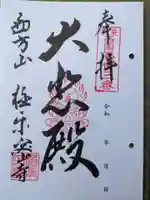 奉拝
令和 年 月 日
大悲殿
西方山 極楽安寺